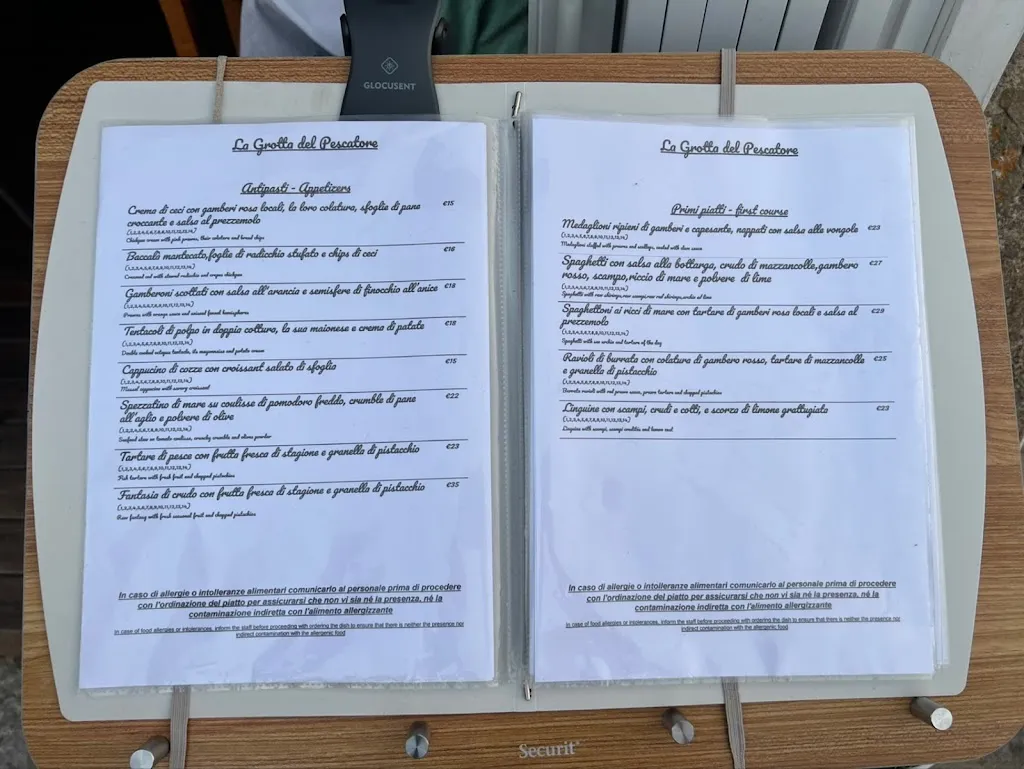 GLOCUSENT
La Grotta del Pescatore
Antipasti - Appetizers
Crema di ceci con gamberi rosa locali, la loro colatura, sfoglie di pane €15
croccante e salsa al prezzemolo
(1,2,3,4,5,6,7,8,9,10,11,12,13,14)
Chickpea cream with pink prawns, their colatura and bread chips
Baccalà mantecato,foglie di radicchio stufato e chips di ceci €16
(1,2,3,4,5,6,7,8,9,10,11,12,13,14)
Creamed cod with stewed radicchio and crepes chickpeas
Gamberoni scottati con salsa all'arancia e semisfere di finocchio all'anice €18
(1,2,3,4,5,6,7,8,9,10,11,12,13,14)
Prawns with orange sauce and anised fennel hemispheres
Tentacoli di polpo in doppia cottura, la sua maionese e crema di patate €18
(1,2,3,4,5,6,7,8,9,10,11,12,13,14)
Double cooked octopus tentacle, its mayonnaise and potato cream
Cappucino di cozze con croissant salato di sfoglia €15
(1,2,3,4,5,6,7,8,9,10,11,12,13,14)
Mussel cappucino with savory croissant
Spezzatino di mare su coulisse di pomodoro freddo, crumble di pane €22
all'aglio e polvere di olive
(1,2,3,4,5,6,7,8,9,10,11,12,13,14)
Seafood stew on tomato coulisse, crunchy crumble and olives powder
Tartare di pesce con frutta fresca di stagione e granella di pistacchio €23
(1,2,3,4,5,6,7,8,9,10,11,12,13,14)
Fish tartare with fresh fruit and chopped pistachios
Fantasia di crudo con frutta fresca di stagione e granella di pistacchio €35
(1,2,3,4,5,6,7,8,9,10,11,12,13,14)
Raw fantasy with fresh seasonal fruit and chopped pistachios
In caso di allergie o intolleranze alimentari comunicarlo al personale prima di procedere
con l'ordinazione del piatto per assicurarsi che non vi sia nè la presenza, nè la
contaminazione indiretta con l'alimento allergizzante
In case of food allergies or intolerances, inform the staff before proceeding with ordering the dish to ensure that there is neither the presence nor
indirect contamination with the allergenic food
La Grotta del Pescatore
Primi piatti - first course
Medaglioni ripieni di gamberi e capesante, nappati con salsa alle vongole €23
(1,2,3,4,5,6,7,8,9,10,11,12,13,14)
Medaglions stuffed with prawns and scallops, coated with clam sauce
Spaghetti con salsa alla bottarga, crudo di mazzancolle,gambero €27
rosso, scampo,riccio di mare e polvere di lime
(1,2,3,4,5,6,7,8,9,10,11,12,13,14)
Spaghetti with raw shrimps,
Spaghettoni ai ricci di mare con tartare di gamberi rosa locali e salsa al €29
prezzemolo
(1,2,3,4,5,6,7,8,9,10,11,12,13,14)
Spaghetti with sea urchin and tartare of the day
Ravioli di burrata con colatura di gambero rosso, tartare di mazzancolle €25
e granella di pistacchio
(1,2,3,4,5,6,7,8,9,10,11,12,13,14)
Burrata ravioli with red prawn sauce, prawn tartare and chopped pistachios
Linguine con scampi, crudi e cotti, e scorza di limone grattugiata €23
(1,2,3,4,5,6,7,8,9,10,11,12,13,14)
Linguine with scampi, scampi crudités and lemon zest
In caso di allergie o intolleranze alimentari comunicarlo al personale prima di procedere
con l'ordinazione del piatto per assicurarsi che non vi sia nè la presenza, nè la
contaminazione indiretta con l'alimento allergizzante
In case of food allergies or intolerances, inform the staff before proceeding with ordering the dish to ensure that there is neither the presence nor
indirect contamination with the allergenic food
Securit